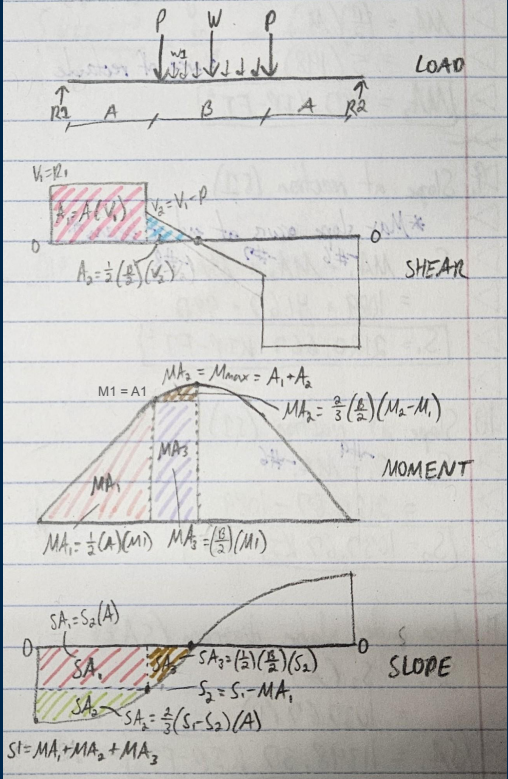 P W P
w1
LOAD
R1 R2
A B A
V1=R1
A1=A(V1) V2=V1-P
0 0
A2=½(B/2)(V2)
SHEAR
MA2 = Mmax = A1+A2
M1 = A1
MA2 = 2/3 (B/2)(M2-M1)
MA3
MOMENT
MA1
MA1=½(A)(M1) MA3=(B/2)(M1)
SA1=S2(A)
0 0
SA1 SA3 SA3=(1/2)(B/2)(S2)
SLOPE
S2=S1-MA1
SA2 SA2=2/3(S1-S2)(A)
S1=MA1+MA2+MA3